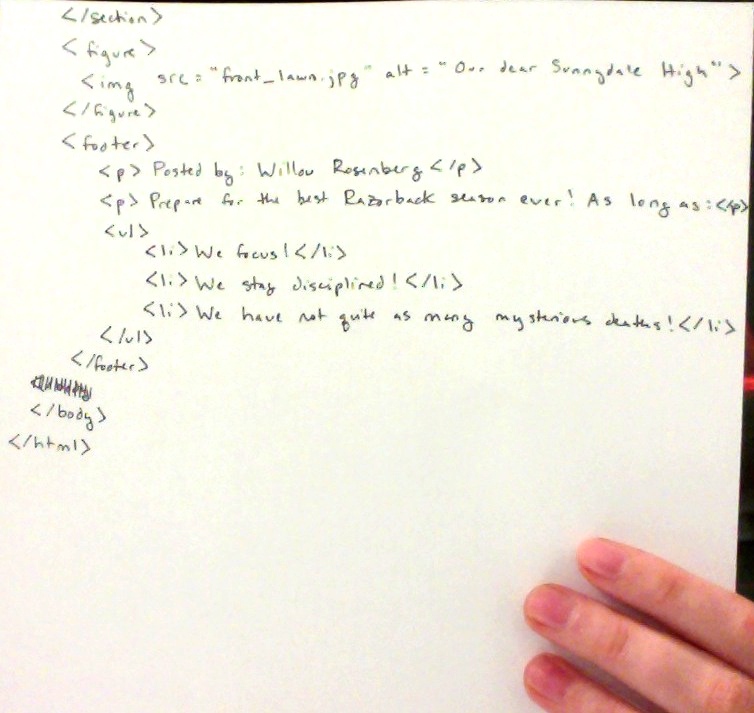 </section>
<figure>
<img src="front_lawn.jpg" alt="Our dear Sunnydale High">
</figure>
<footer>
<p>Posted by: Willow Rosenberg</p>
<p>Prepare for the best Razorback season ever! As long as:</p>
<ul>
<li>We focus!</li>
<li>We stay disciplined!</li>
<li>We have not quite as many mysterious deaths!</li>
</ul>
</footer>
</body>
</html>